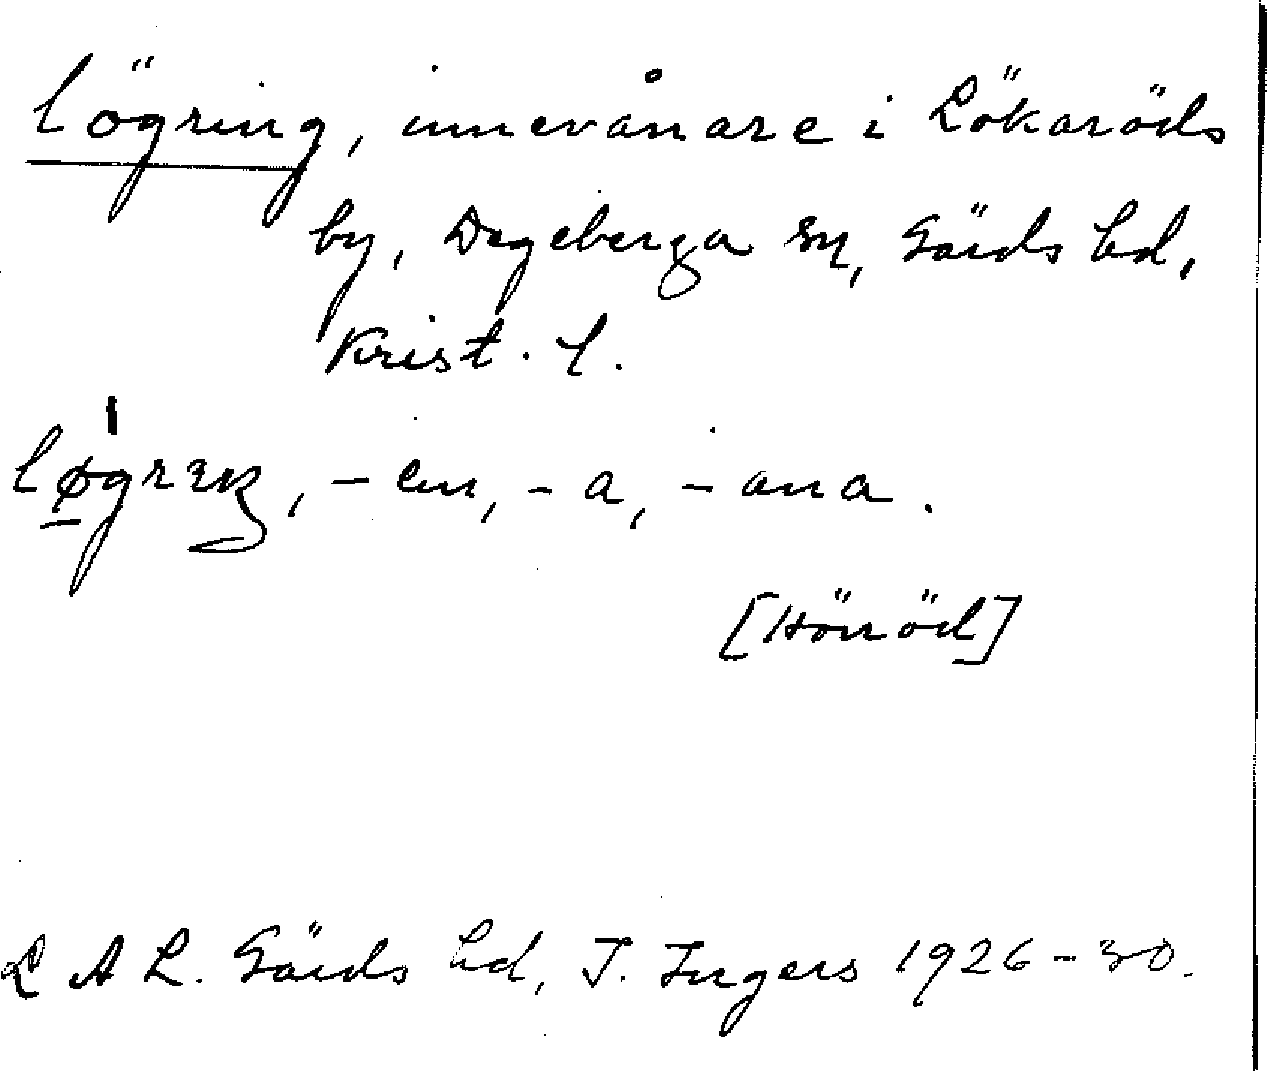 lögring, innevånare i Lökaröds
by, Degeberga sn, Gärds hd,
Krist. l.
, -en, -a, -ana.
[Hörröd]
L A L. Gärds hd, I. Ingers 1926-30.